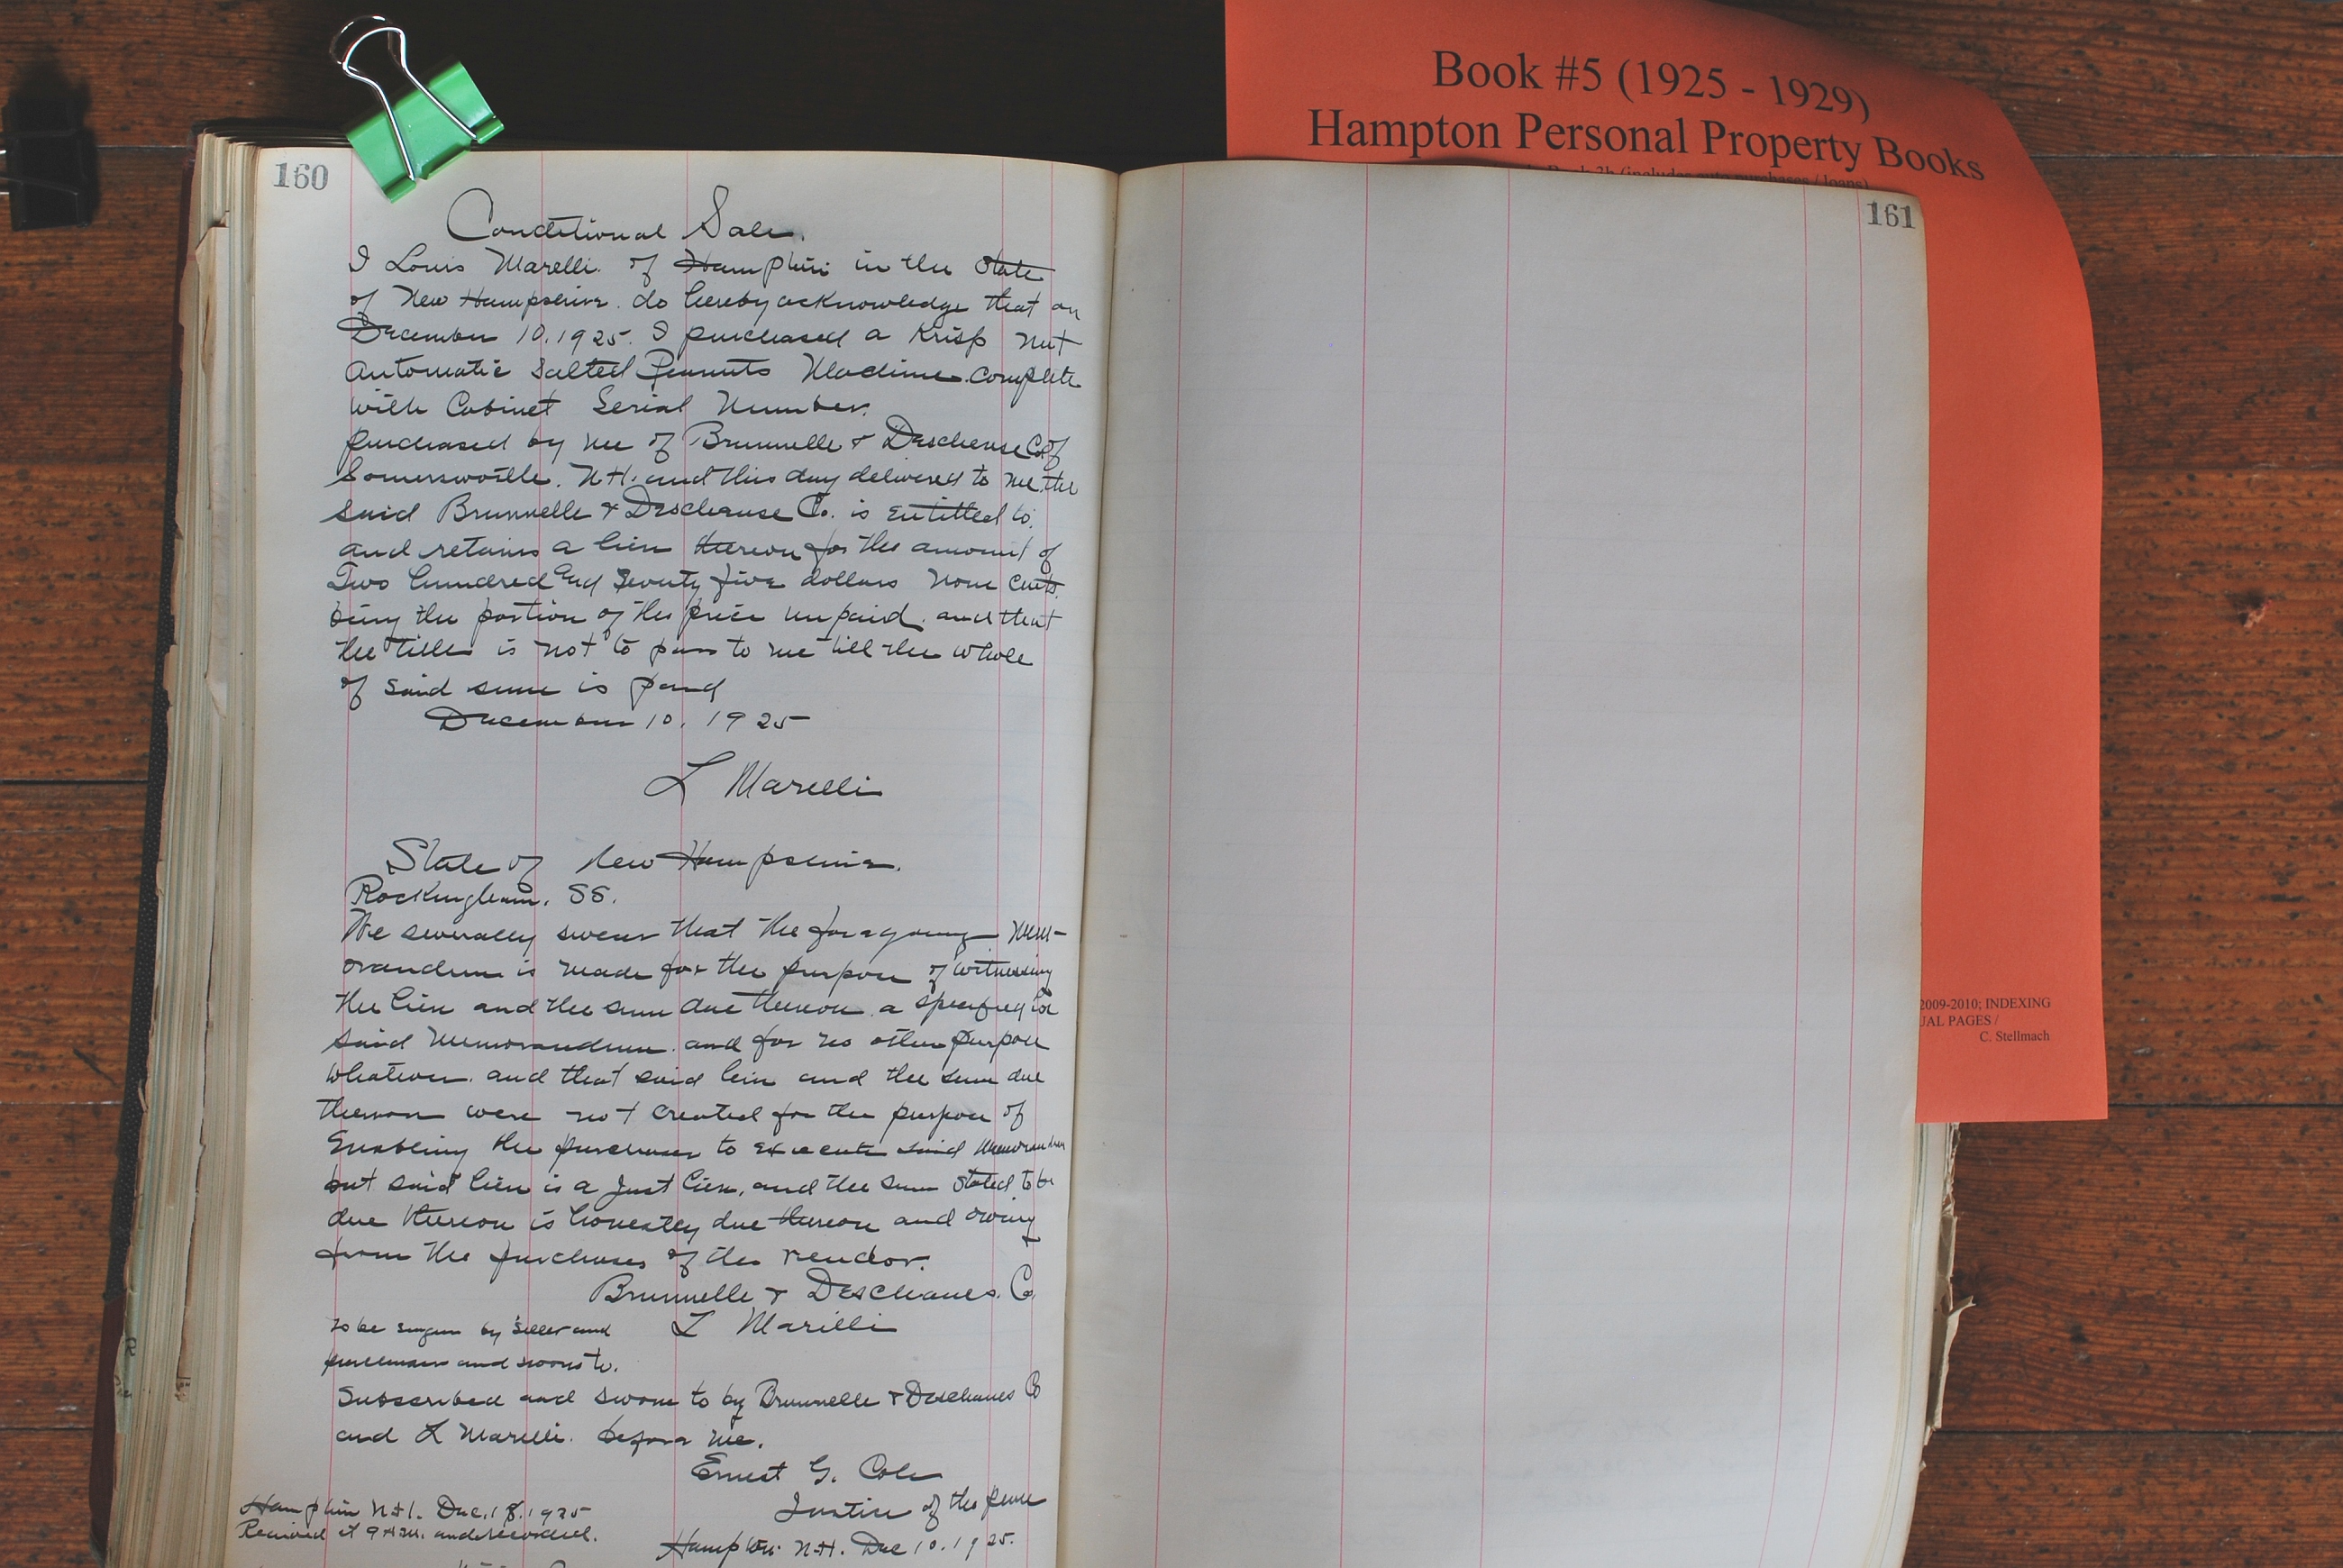 Book #5 (1925 - 1929)
Hampton Personal Property Books
160
Conditional Sale.
I Louis Marelli. of Hampton in the State
of New Hampshire. do hereby acknowledge that on
December 10, 1925. I purchased a Krisp Nut
Automatic Salted Peanuts Machine. complete
with Cabinet Serial Number.
purchased by me of Brunnelle & Deschense Co. of
Somersworth. N.H. and this day delivered to me. the
said Brunnelle & Deschense Co. is entitled to.
and retains a lien thereon for the amount of
Two hundred and seventy five dollars none cents.
being the portion of the price unpaid. and that
the title is not to pass to me till the whole
of said sum is paid
December 10, 1925
L Marelli
State of New Hampshire.
Rockingham. SS.
We severally swear that the foregoing Mem-
orandum is made for the purpose of witnessing
the lien and the sum due thereon a specified in
said Memorandum. and for no other purpose
whatever. and that said lien and the sum due
thereon were not created for the purpose of
Enabling the purchaser to execute said Memorandum
but said lien is a Just lien, and the sum stated to be
due thereon is honestly due thereon and owing
from the purchases of the vendor.
Brunnelle & Deschanes. Co.
to be signed by seller and L Marilli
purchaser and sworn to.
Subscribed and sworn to by Brunnelle & Deschanes Co
and L Marelli. before me.
Ernest G. Cole
Justice of the peace
Hampton N.H. Dec 10, 1925.
Hampton N.H. Dec. 18, 1925
Received at 9 A.M. and recorded.
161
2009-2010; INDEXING
UAL PAGES /
C. Stellmach